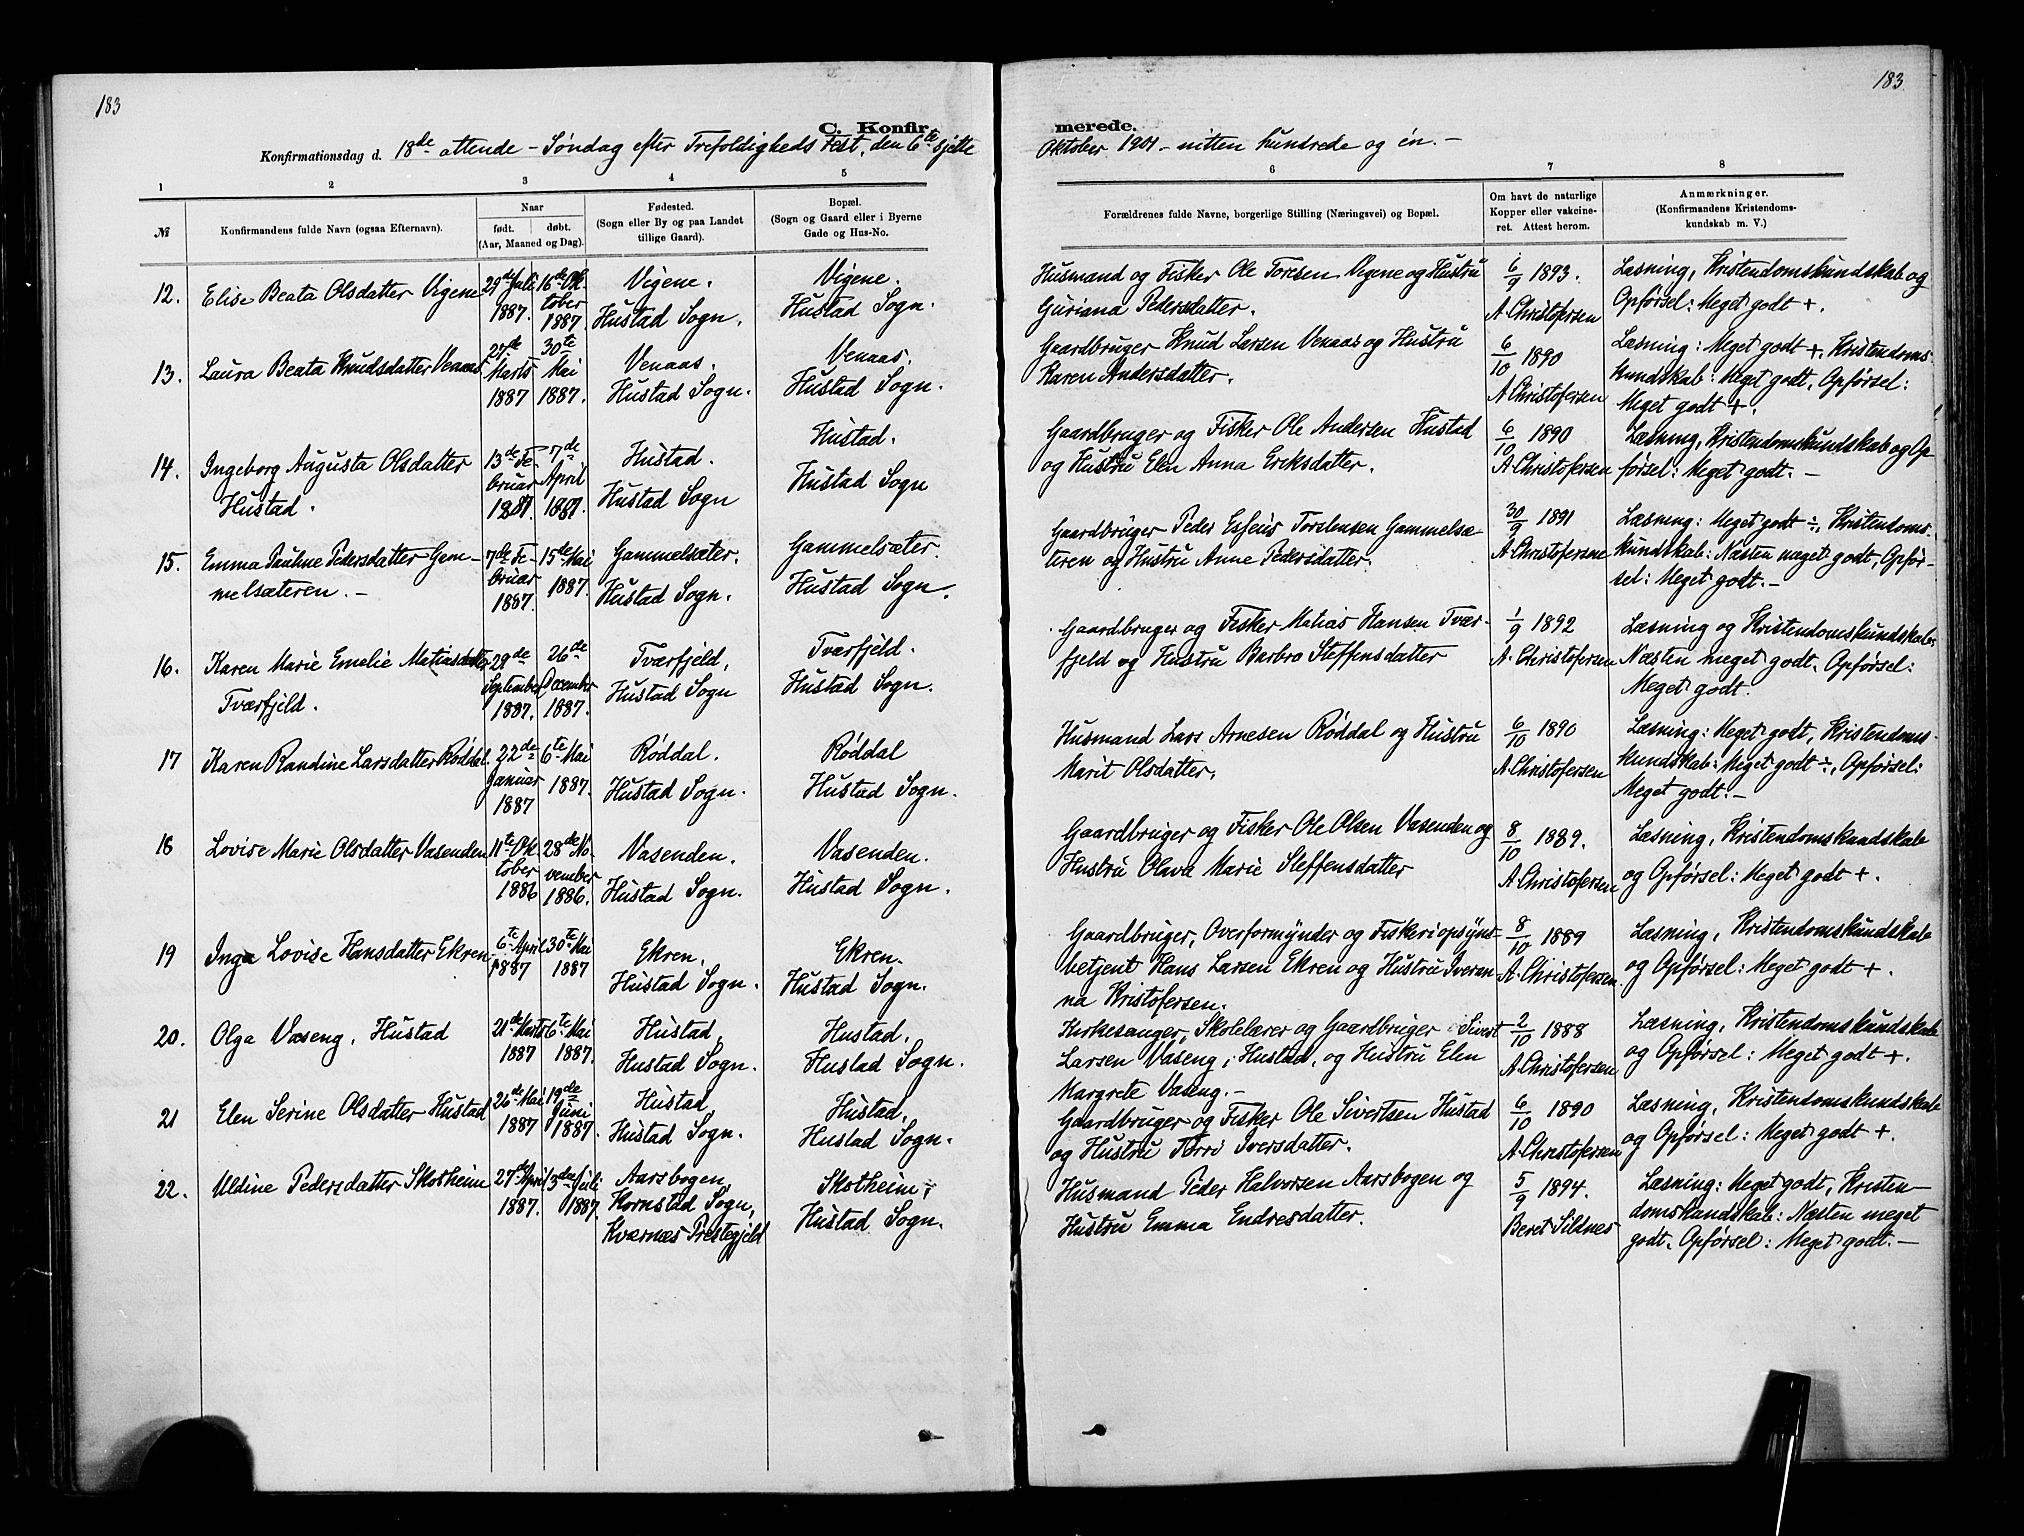 183
183
C. Konfir
merede.
Konfirmationsdag d. 18de attende - Søndag efter Trefoldigheds Fest, den 6te sjette
Oktober 1901 - nitten hundrede og én. -
1 2 3 4 5
6 7 8
№
Konfirmandens fulde Navn (ogsaa Efternavn).
Naar
født. døbt.
(Aar, Maaned og Dag).
Fødested.
(Sogn eller By og paa Landet
tillige Gaard).
Bopæl.
(Sogn og Gaard eller i Byerne
Gade og Hus-No.
Forældrenes fulde Navne, borgerlige Stilling (Næringsvei) og Bopæl.
Om havt de naturlige
Kopper eller vakcine-
ret. Attest herom.
Anmærkninger.
(Konfirmandens Kristendoms-
kundskab m. V.)
12. Elise Beata Olsdatter Vigene
29de Juli
1887.
16de Ok-
tober
1887
Vigene.
Hustad Sogn.
Vigene.
Hustad Sogn.
Husmand og Fisker Ole Toresen Vigene og Hustru
Guriana Pedersdatter.
6/9 1893.
A. Christofersen
Læsning, Kristendomskundskab og
Opførsel: Meget godt +.
13. Laura Beata Knudsdatter Venaas
Marts
1887
30te
Mai
1887.
Venaas.
Hustad Sogn.
Venaas.
Hustad Sogn.
Gaardbruger Knud Larsen Venaas og Hustru
Karen Andersdatter.
6/10 1890
A. Christofersen
Læsning: Meget godt +, Kristendoms-
kundskab: Meget godt, Opførsel:
Meget godt +.
14. Ingeborg Augusta Olsdatter
Hustad.
13de Fe-
bruar
1887.
7de
April
1887.
Hustad.
Hustad Sogn
Hustad.
Hustad Sogn
Gaardbruger og Fisker Ole Andersen Hustad
og Hustru Elen Anna Eriksdatter.
6/10 1890
A. Christofersen
Læsning, Kristendomskundskab og Op-
førsel: Meget godt. -
15. Emma Pauline Pedersdatter Gam-
melsæteren. -
7de Fe-
bruar
1887.
15de Mai
1887.
Gammelsæter.
Hustad Sogn.
Gammelsæter.
Hustad Sogn.
Gaardbruger Peder Torstensen Gammelsæ-
teren og Hustru Anne Pedersdatter.
30/9 1891
A. Christofersen
Læsning: Meget godt ÷, Kristendoms-
kundskab: Næsten meget godt, Opfør-
sel: Meget godt. -
16. Karen Marie Emelie Matiasdatter
Tværfjeld.
29de
September
1887.
26de
December
1887.
Tværfjeld,
Hustad Sogn
Tværfjeld.
Hustad Sogn.
Gaardbruger og Fisker Matias Hansen Tvær-
fjeld og Hustru Barbro Steffensdatter
1/9 1892
A. Christofersen
Læsning og Kristendomskundskab:
Næsten meget godt. Opførsel:
Meget godt.
17 Karen Randine Larsdatter Røddal.
22de
Januar
1887
6te Mai
1887.
Røddal.
Hustad Sogn.
Røddal
Hustad Sogn.
Husmand Lars Arnesen Røddal og Hustru
Marit Olsdatter.
6/10 1890
A. Christofersen
Læsning: Meget godt, Kristendoms-
kundskab: Meget godt ÷, Opførsel:
Meget godt. -
18 Lovise Marie Olsdatter Vasenden
11te Ok-
tober
1886
28de No-
vember
1886.
Vasenden.
Hustad Sogn.
Vasenden.
Hustad Sogn.
Gaardbruger og Fisker Ole Olsen Vasenden og
Hustru Olava Marie Steffensdatter
8/10 1889.
A. Christofersen
Læsning, Kristendomskundskab
og Opførsel: Meget godt +.
19 Inga Lovise Hansdatter Ekren.
6te April
1887
30te Mai
1887
Ekren,
Hustad Sogn.
Ekren.
Hustad Sogn.
Gaardbruger, Overformynder og Fiskeriopsyns-
betjent Hans Larsen Ekren og Hustru Iveran-
na Kristofersen.
8/10 1889
A. Christofersen.
Læsning, Kristendomskundskab
og Opførsel: Meget godt +.
20. Olga Vaseng, Hustad
21de Marts
1887
6te Mai
1887.
Hustad,
Hustad Sogn.
Hustad,
Hustad Sogn.
Kirkesanger, Skolelærer og Gaardbruger Sivert
Larsen Vaseng, Hustad, og Hustru Elen
Margrete Vaseng. -
2/10 1888
A. Christofersen
Læsning, Kristendomskundskab
og Opførsel: Meget godt +.
21 Elen Serine Olsdatter Hustad
26de Mai
1887
19de
Juni
1887.
Hustad,
Hustad Sogn.
Hustad,
Hustad Sogn.
Gaardbruger og Fisker Ole Sivertsen Hustad
og Hustru Iversdatter.
6/10 1890
A. Christofersen
Læsning, Kristendomskundskab
og Opførsel: Meget godt +.
22. Uldine Pedersdatter Skotheim
27de April
1887.
3die Juli
1887.
Aarsbogen,
Kornstad Sogn,
Kværnæs Prestegjeld
Skotheim,
Hustad Sogn.
Husmand Peder Halvorsen Aarsbogen og
Hustru Emma Endresdatter.
5/9 1894.
Beret Sildnes
Læsning: Meget godt, Kristen-
domskundskab: Næsten meget
godt. Opførsel: Meget godt. -